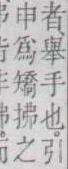 者。舉手也。引
申爲矯拂之